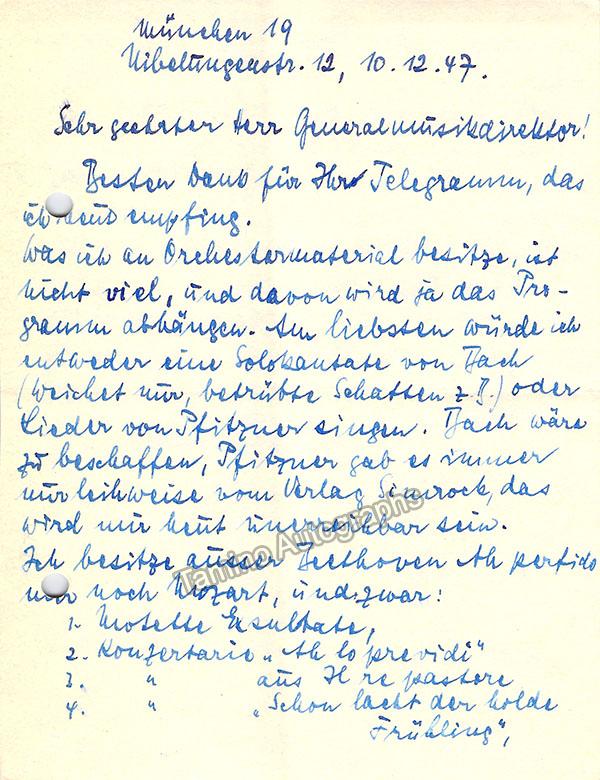 München 19
Nibelungenstr. 12, 10.12.47.
Sehr geehrter Herr Generalmusikdirektor!
Besten Dank für Ihr Telegramm, das
ich heut empfing.
Was ich an Orchestermaterial besitze, ist
nicht viel, und davon wird ja das Pro-
gramm abhängen. Am liebsten würde ich
entweder eine Solokantate von Bach
(Weichet nur, betrübte Schatten z.B.) oder
Lieder von Pfitzner singen. Bach wäre
zu beschaffen, Pfitzner gab es immer
nur leihweise vom Verlag Simrock, das
wird mir heut unerreichbar sein.
Ich besitze ausser Beethoven Ah perfido
nur noch Mozart, und zwar:
1. Motette Exsultate,
2. Konzertarie „Ah lo previdi"
3. " aus Il re pastore
4. " „Schon lacht der holde
Frühling",
Tamino Autographs